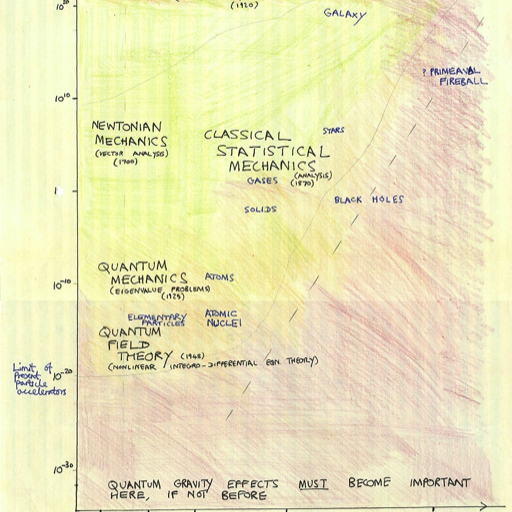 10²⁰
(1920)
GALAXY
? PRIMEAVAL
FIREBALL
10¹⁰
NEWTONIAN
MECHANICS
(VECTOR ANALYSIS)
(1700)
CLASSICAL
STATISTICAL
MECHANICS
(ANALYSIS)
(1870)
STARS
GASES
1
SOLIDS
BLACK HOLES
QUANTUM
MECHANICS
(EIGENVALUE PROBLEMS)
(1925)
ATOMS
10⁻¹⁰
ELEMENTARY
PARTICLES
ATOMIC
NUCLEI
QUANTUM
FIELD
THEORY (1948)
(NONLINEAR INTEGRO-DIFFERENTIAL EQN. THEORY)
Limit of
Present
particle
accelerators
10⁻²⁰
10⁻³⁰
QUANTUM GRAVITY EFFECTS MUST BECOME IMPORTANT
HERE, IF NOT BEFORE